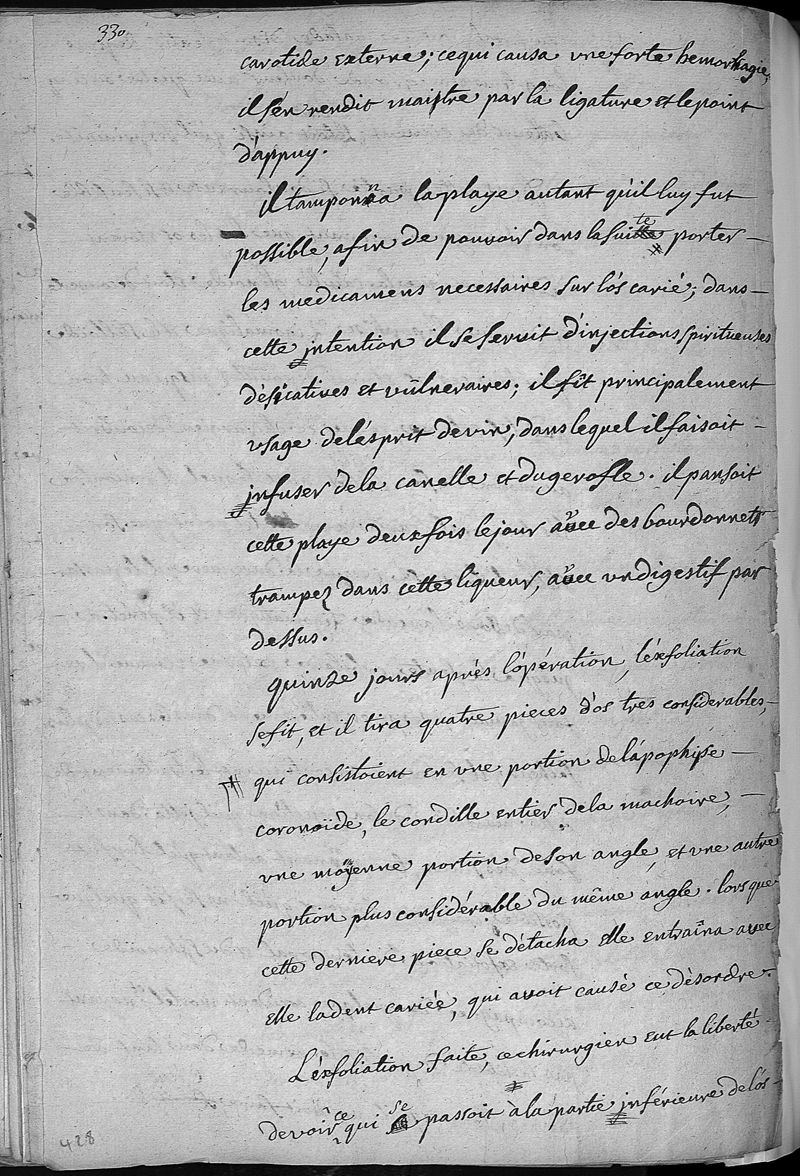 330
carotide externe; ce qui causa vne forte hemorhagie;
il s'en rendit maistre par la ligature et le point
d'appuy.
il tamponna la playe autant qu'il luy fut
possible, afin de pouvoir dans la suitte porter
les medicamens necessaires sur l'os carié; dans
cette jntention il se servit d'injections spiritueuses
désicatives et vûlneraires; il fit principalement
vsage de l'ésprit de vin, dans lequel il faisoit
jnfuser de la canelle et du gerofle. il pansoit
cette playe deux fois le jour avec des bourdonnets
trampez dans cette liqueur, avec vn digestif par
dessus.
quinze jours après l'opération, l'éxfoliation
se fit, et il tira quatre pieces d'os tres considerables,
qui consistoient en vne portion de l'ápophise
coronoïde, le condille entier de la machoire,
vne moÿenne portion de son angle, et vne autre
portion plus considérable du même angle. lors que
cette derniere piece se détacha elle entraîna avec
elle la dent cariée, qui avoit causé ce désordre.
L'éxfoliation faite, ce chirurgien eut la liberté
de voir ce qui se passoit à la partie jnférieure de l'os
428